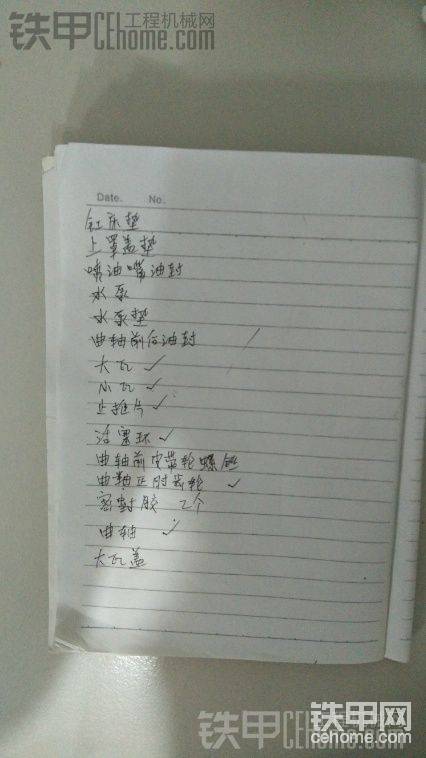 铁甲 工程机械网
CEhome.com
Date. No.
缸床垫
上罩盖垫
喷油嘴油封
水泵
水泵垫
曲轴前后油封
大瓦 ✓
小瓦 ✓
止推片 ✓
活塞环 ✓
曲轴前皮带轮螺丝
曲轴正时齿轮 ✓
密封胶 2个
曲轴 ✓
大瓦盖
铁甲网
cehome.com